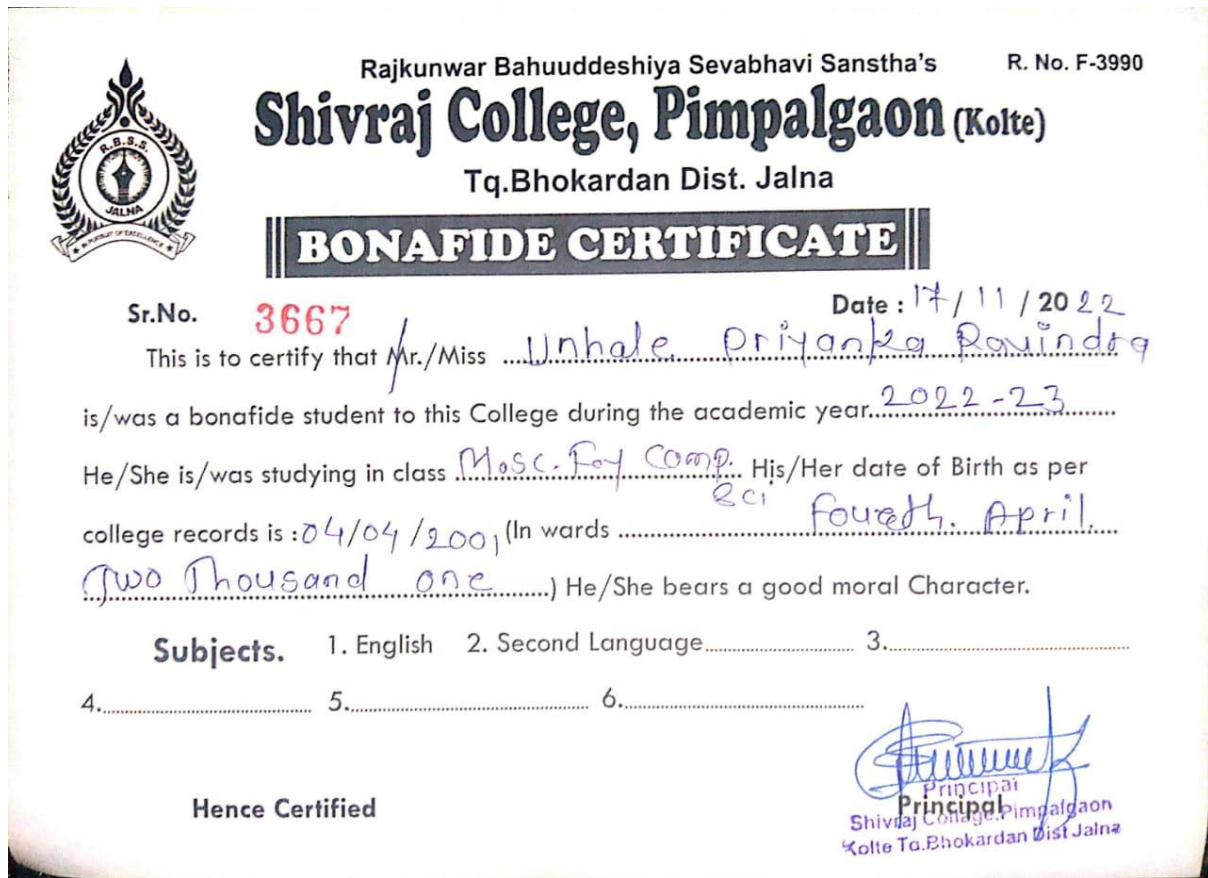 Rajkunwar Bahuuddeshiya Sevabhavi Sanstha's R. No. F-3990
Shivraj College, Pimpalgaon (Kolte)
Tq.Bhokardan Dist. Jalna
R.B.S.S.
JALNA
IN PURSUIT OF EXCELLENCE
BONAFIDE CERTIFICATE
Sr.No. 3667 Date : 17/11/2022
This is to certify that Mr./Miss Unhale Priyanka Ravindra
is/was a bonafide student to this College during the academic year 2022-23
He/She is/was studying in class M.sc. Foy Comp. Sci His/Her date of Birth as per
college records is : 04/04/2001 (In wards Fourth. April.
Two Thousand one ) He/She bears a good moral Character.
Subjects. 1. English 2. Second Language 3.
4. 5. 6.
Hence Certified Principal
Principal
Shivraj Collage.Pimpalgaon
Kolte Ta.Bhokardan Dist Jalna